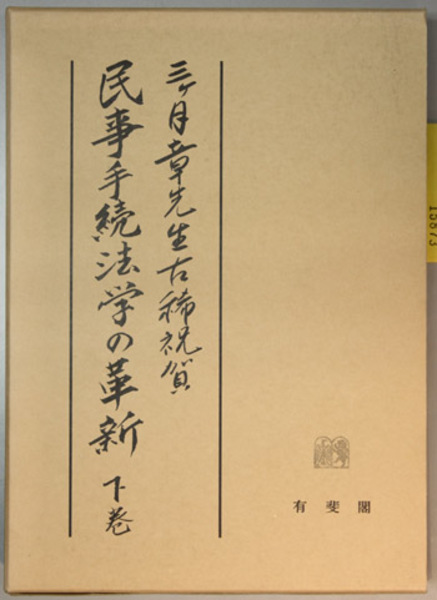 三ケ月章先生古稀祝賀
民事手続法学の革新 下巻
有斐閣
15873